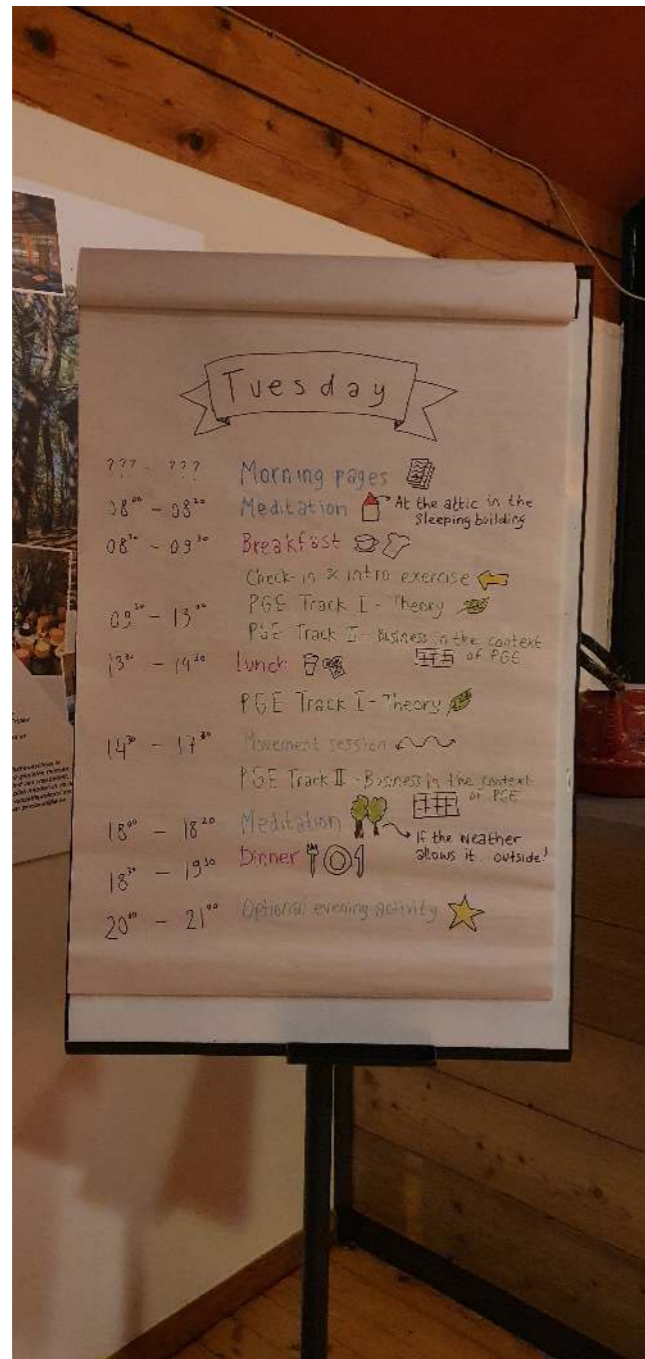 Tuesday
??? - ???   Morning pages
08⁰⁰ - 08²⁰   Meditation   At the attic in the
sleeping building
08³⁰ - 09³⁰   Breakfast
Check-in & intro exercise
09³⁰ - 13⁰⁰   PGE Track I - Theory
PGE Track II - Business in the context
of PGE
13⁰⁰ - 14³⁰   Lunch
PGE Track I - Theory
14³⁰ - 17³⁰   Movement session
PGE Track II - Business in the context
of PGE
18⁰⁰ - 18²⁰   Meditation
If the weather
allows it, outside!
18³⁰ - 19³⁰   Dinner
20⁰⁰ - 21⁰⁰   Optional evening activity